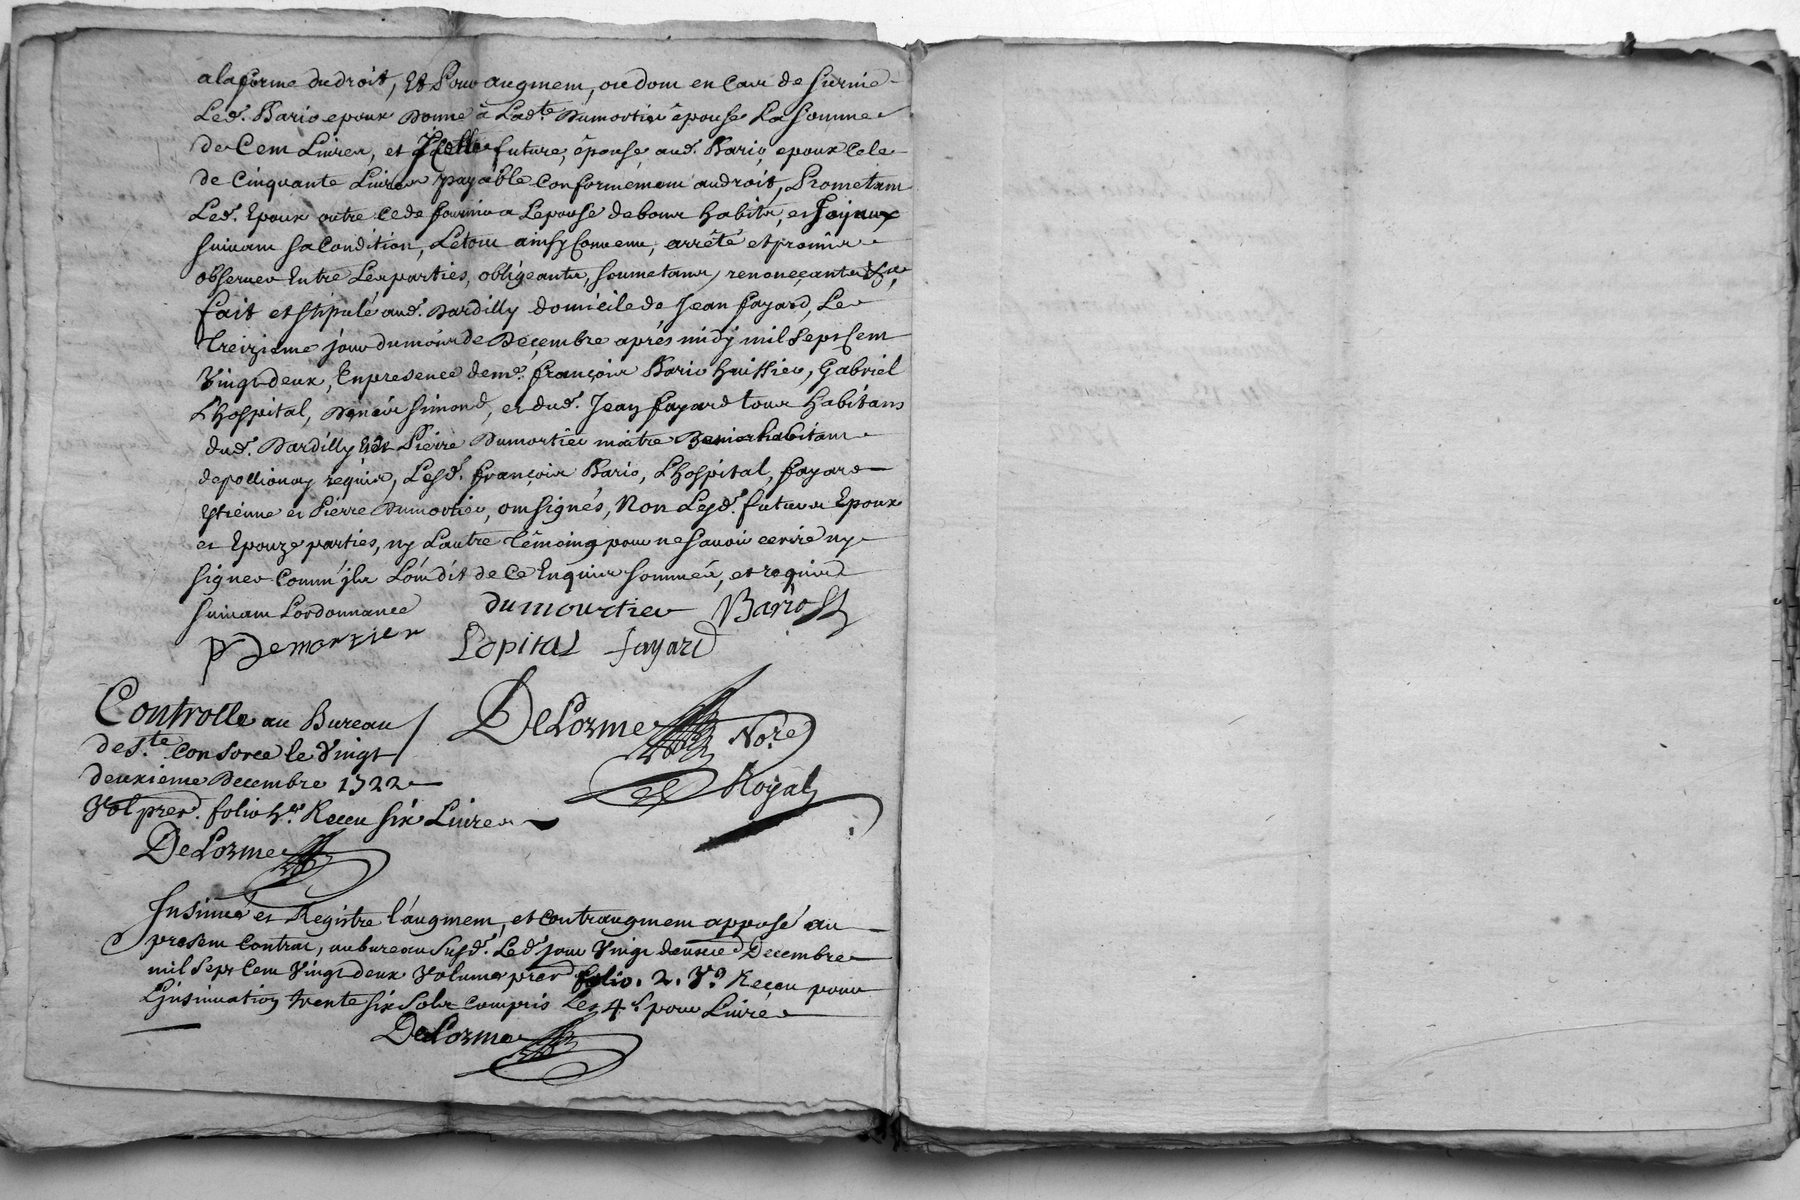 a la forme du droit, Et Pour augment, ou don en Cas de survie
Led. Bario epoux donne à Lad.te Dumortier épouse La Somme
de Cent Livres, et Jcelle future, épouse aud. Bario, epoux Cele
de Cinquante Livres payable Conformément au droit, Prometant
Led. Epoux outre Ce de fournir a Lepouse de bons habits, et Joijaux
suivant sa Condition, Le tout ainsy Convenu, arrêté et promis
observer Entre Les parties, obligeants, soumetans, renonçants &a,
fait et stipulé aud. Dardilly domicile de Jean fayard, Le
treizieme jour du mois de Deçembre aprés midy mil sept Cent
Vingt deux, En presence de me. françois Bario huissier, Gabriel
L'hospital, Simond, et dud. Jean fayard tous habitans
dud. Dardilly Et Pierre Dumortier maitre habitant
de pollionay requis, Lesd. françois Bario, L'hospital, fayard
Etienne et Pierre Dumortier, ont signés, Non Lesd. futurs Epoux
et Epouze parties, ny L'autre témoing pour ne savoir ecrire ny
signer Comm'jls L'ont dit de Ce Enquis sommés, et requis
suivant L'ordonnance
dumourtier Bario
P Demortier Lopital fayard
Controlle au Bureau
de S.te Consorce le Vingt
deuxieme Decembre 1722
Vol prer. folio h.. Receu six Livres
DeLorme No.re
Royal
DeLorme
Insinué et Registre l'augment, et contraugment apposé au
present Contrat, au bureau Susd. Led. jour Vingt deuxie. Decembre
mil Sept Cent Vingt deux Volume prer folio. 2. Vo. Receu pour
L'jnsinuation trente six Sols compris Les 4 s. pour Livre
DeLorme